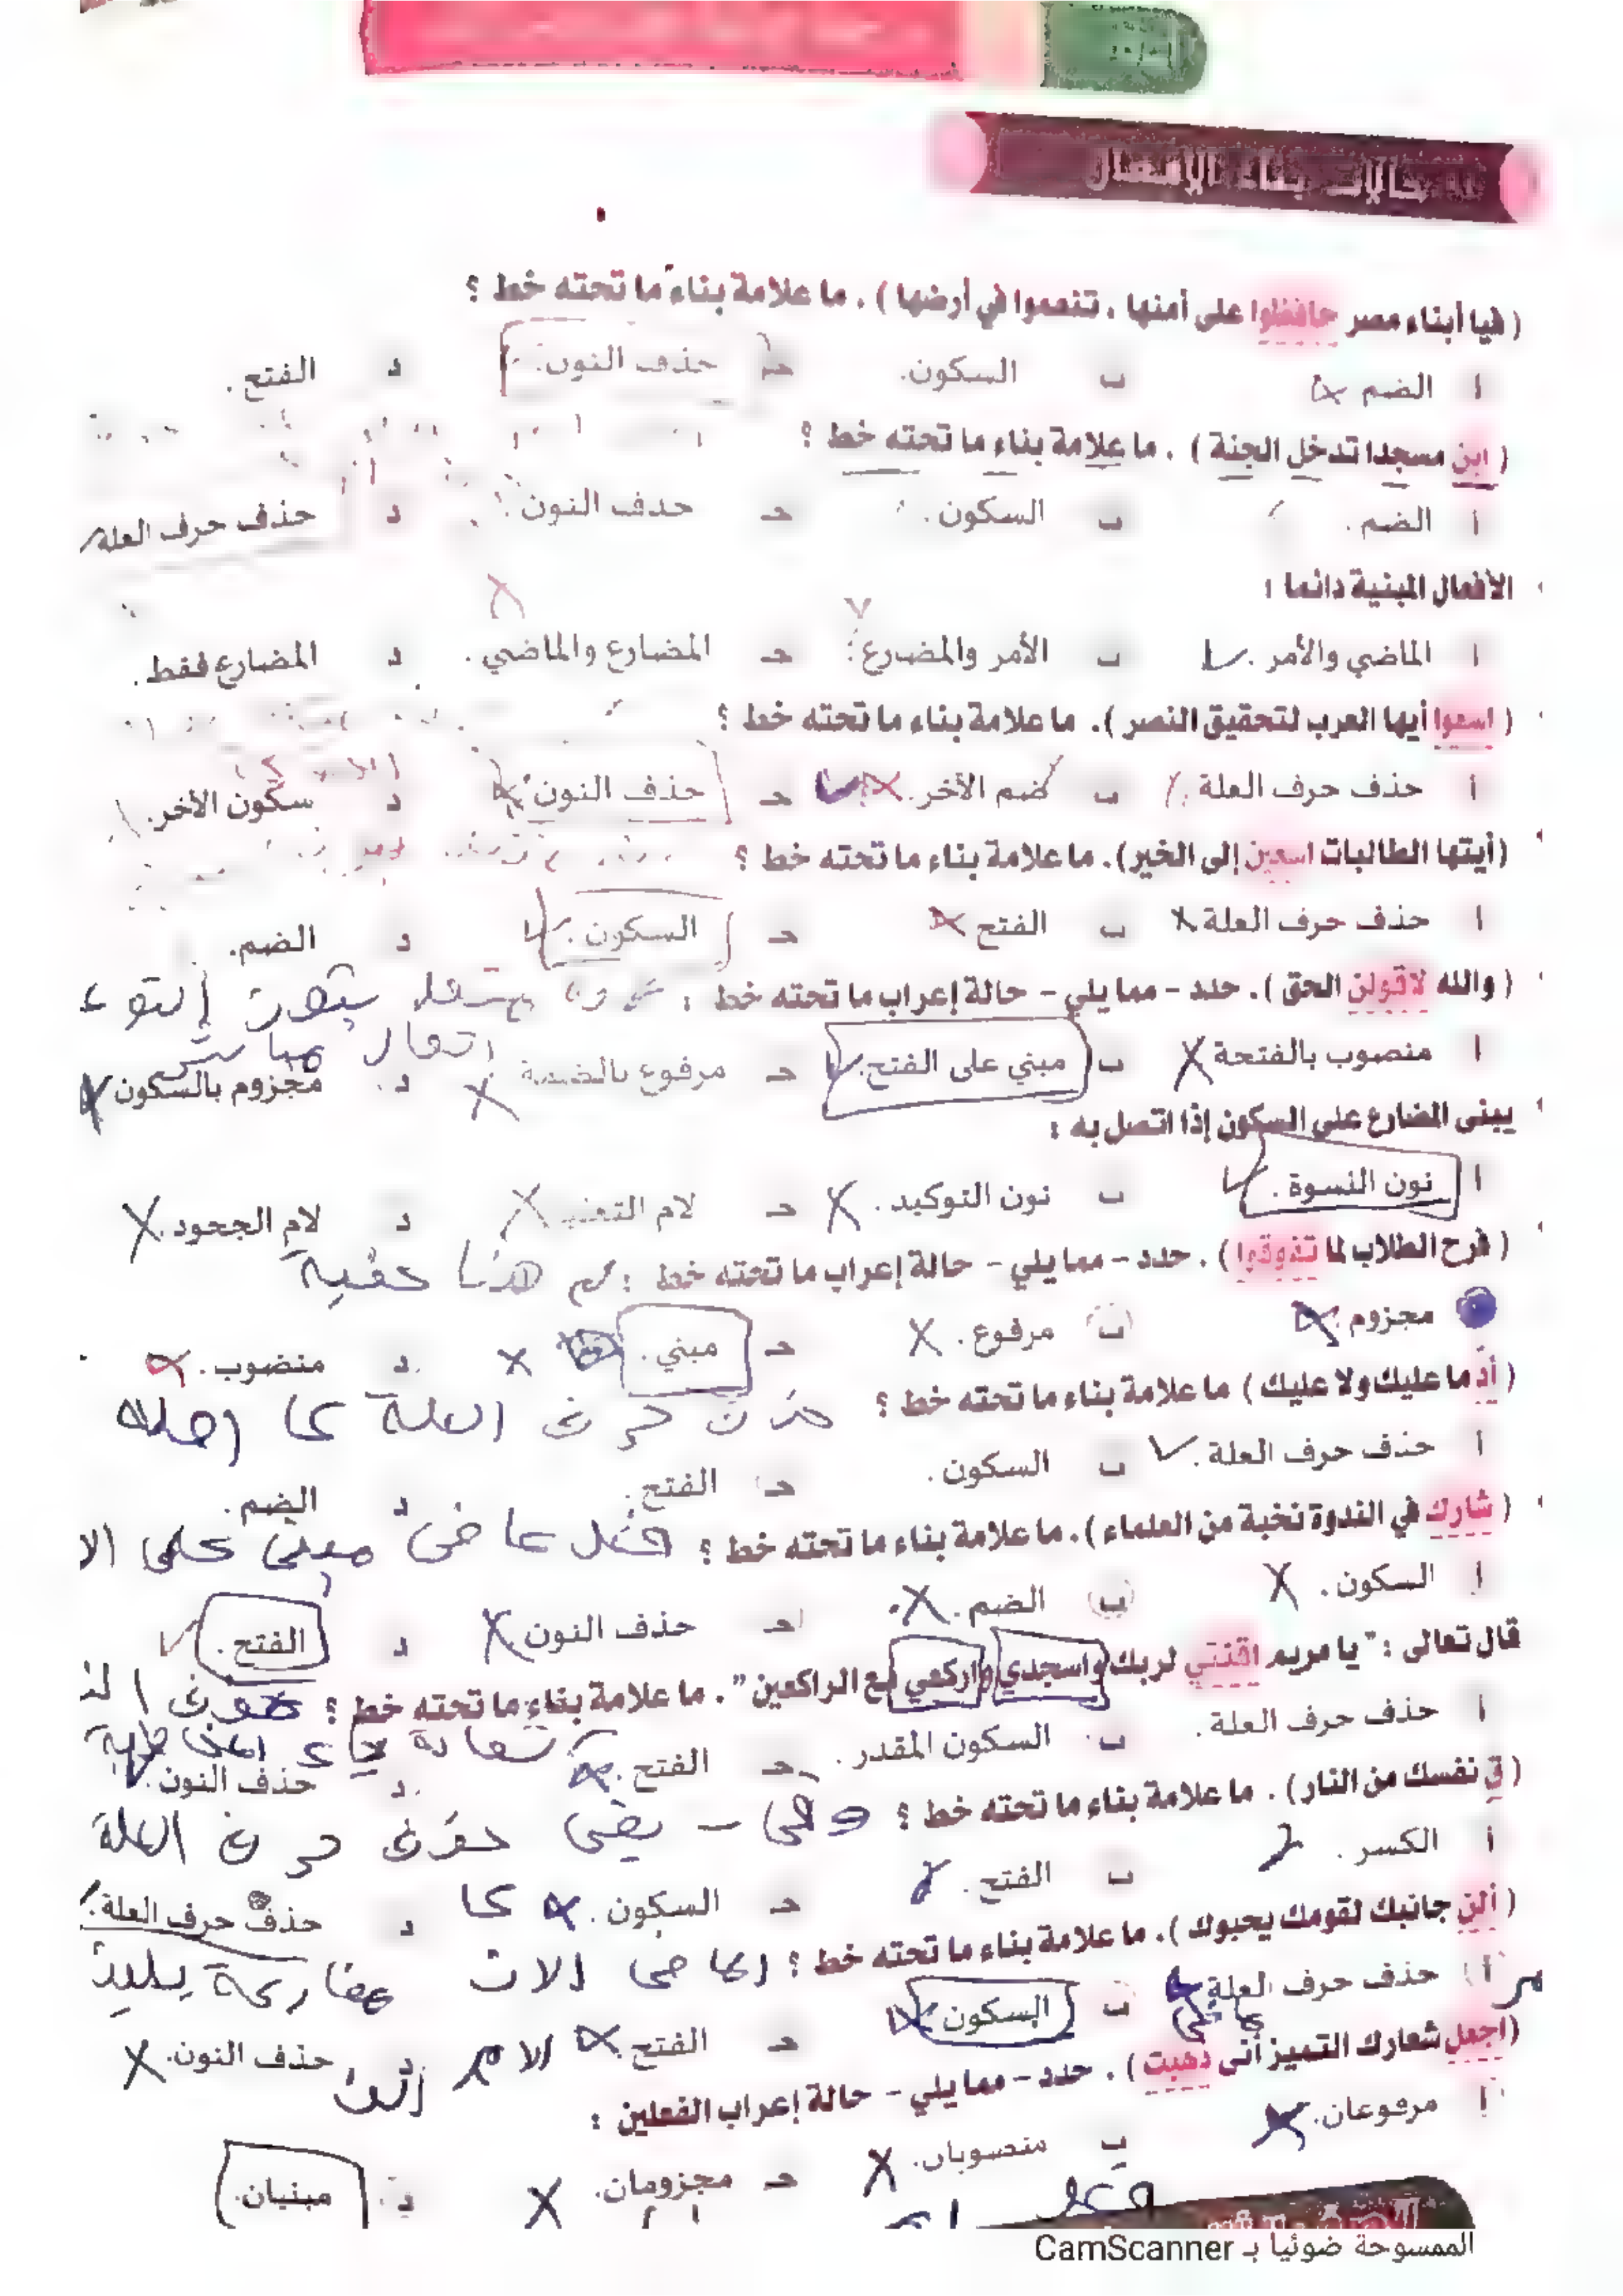 حالات بناء الأفعال
( فيا أبناء مصر حافظوا على أمنها ، تنعموا في أرضها ) . ما علامة بناء ما تحته خط ؟
أ الضم ب السكون. حـ حذف النون. د الفتح .
( ابن مسجدا تدخل الجنة ) . ما علامة بناء ما تحته خط ؟
أ الضم . ب السكون . حـ حذف النون . د حذف حرف العلة
الأفعال المبنية دائما :
أ الماضي والأمر . ب الأمر والمضارع . حـ المضارع والماضي . د المضارع فقط .
( اسعوا أيها العرب لتحقيق النصر ). ما علامة بناء ما تحته خط ؟
أ حذف حرف العلة . ب ضم الأخر . حـ حذف النون . د سكون الأخر .
(أيتها الطالبات اسعين إلى الخير). ما علامة بناء ما تحته خط ؟
أ حذف حرف العلة ب الفتح حـ السكون . د الضم .
( والله لأقولن الحق ). حدد - مما يلي - حالة إعراب ما تحته خط :
أ منصوب بالفتحة ب مبني على الفتح . حـ مرفوع بالضمة د مجزوم بالسكون
يبنى المضارع على السكون إذا اتصل به :
أ نون النسوة . ب نون التوكيد . حـ لام التعليل د لام الجحود .
( فرح الطلاب لما تفوقوا ) . حدد - مما يلي - حالة إعراب ما تحته خط : هنا
مجزوم . ب مرفوع . حـ مبني . د منصوب .
( أدِّ ما عليك ولا عليك ) ما علامة بناء ما تحته خط ؟ حذف حرف العلة
أ حذف حرف العلة . ب السكون . حـ الفتح . د الضم .
( شارك في الندوة نخبة من العلماء ). ما علامة بناء ما تحته خط ؟ فعل ماضى مبنى على
أ السكون . ب الضم . حـ حذف النون د الفتح .
قال تعالى : " يا مريم اقنتي لربك واسجدي واركعي مع الراكعين " . ما علامة بناء ما تحته خط ؟
أ حذف حرف العلة . ب السكون المقدر . حـ الفتح . د حذف النون .
( قِ نفسك من النار) . ما علامة بناء ما تحته خط ؟ وقى - يقى حذف حرف العلة
أ الكسر . ب الفتح . حـ السكون . د حذف حرف العلة .
( ألن جانبك لقومك يحبوك ). ما علامة بناء ما تحته خط ؟ الماضى الان مضارعة يلين
أ حذف حرف العلة ب السكون حـ الفتح . د حذف النون .
الامر ألن
(اجعل شعارك التميز أنى ذهبت ) . حدد - مما يلي - حالة إعراب الفعلين :
أ مرفوعان . ب منصوبان . حـ مجزومان . د مبنيان .
الممسوحة ضوئيا بـ CamScanner